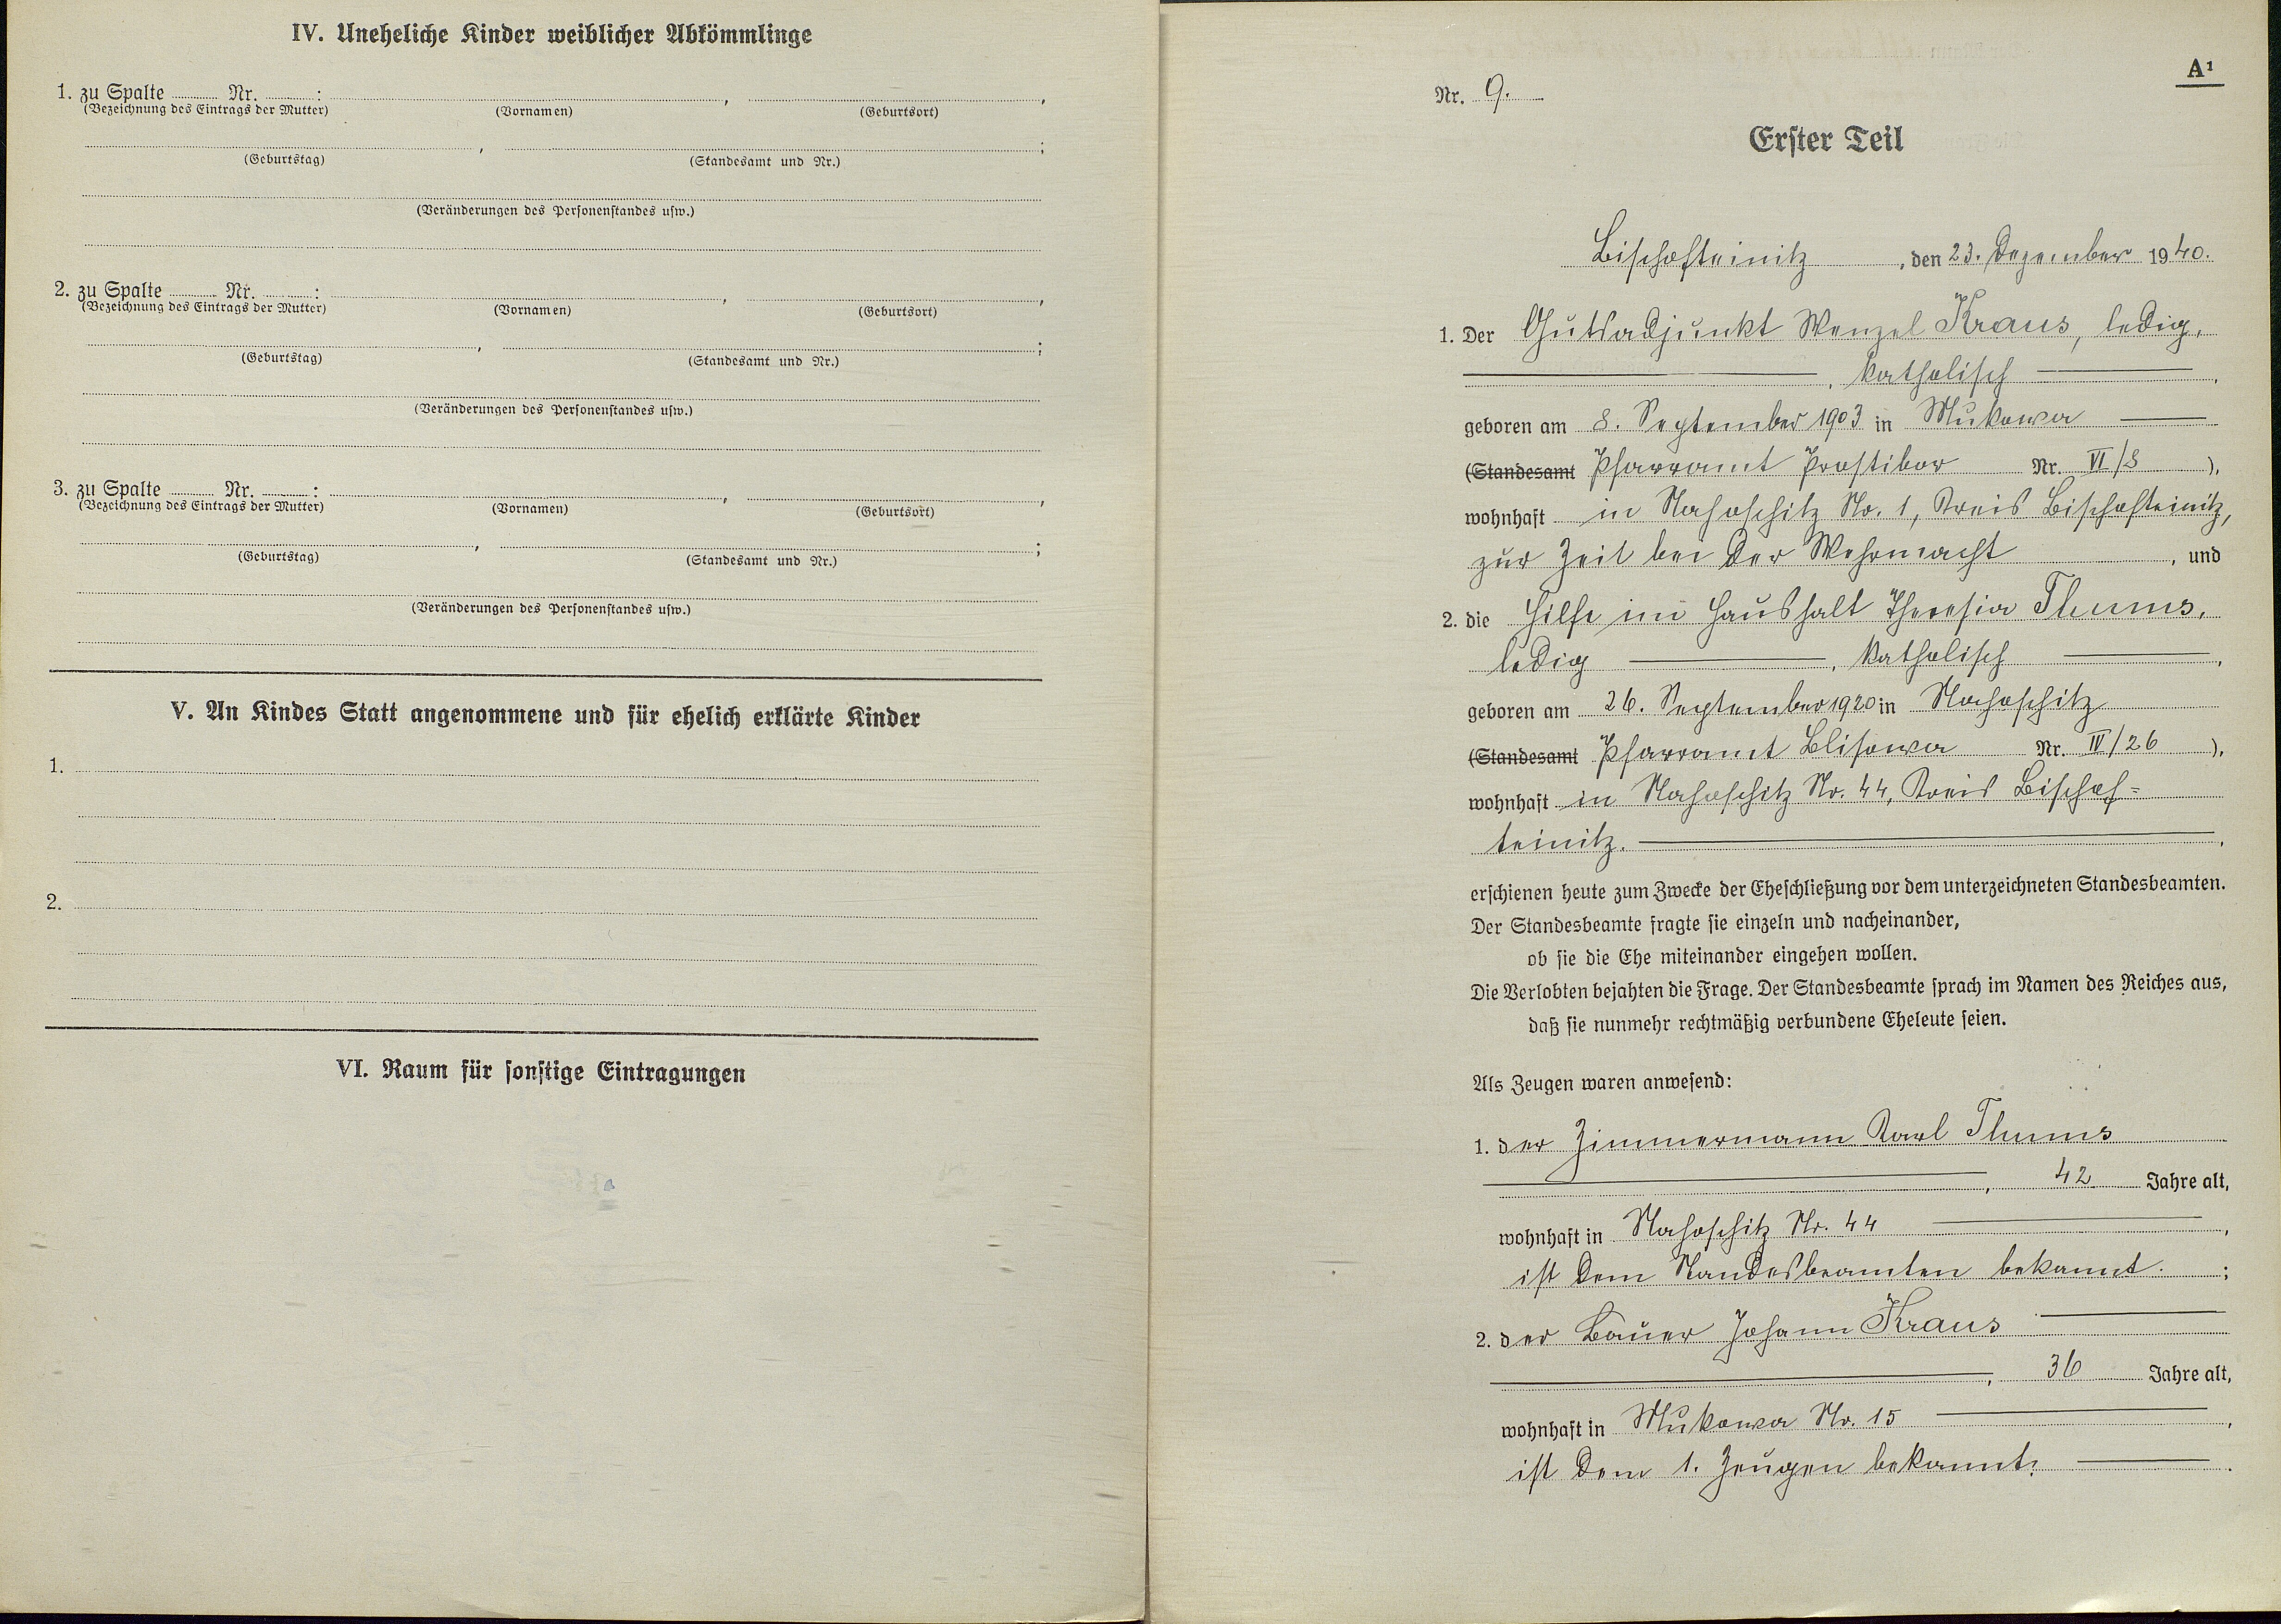 IV. Uneheliche Kinder weiblicher Abkömmlinge
1. zu Spalte ........ Nr. ........ : ........ , ........ ,
(Bezeichnung des Eintrags der Mutter) (Vornamen) (Geburtsort)
........ , ........ ;
(Geburtstag) (Standesamt und Nr.)
(Veränderungen des Personenstandes usw.)
2. zu Spalte ........ Nr. ........ : ........ , ........ ,
(Bezeichnung des Eintrags der Mutter) (Vornamen) (Geburtsort)
........ , ........ ;
(Geburtstag) (Standesamt und Nr.)
(Veränderungen des Personenstandes usw.)
3. zu Spalte ........ Nr. ........ : ........ , ........ ,
(Bezeichnung des Eintrags der Mutter) (Vornamen) (Geburtsort)
........ , ........ ;
(Geburtstag) (Standesamt und Nr.)
(Veränderungen des Personenstandes usw.)
V. An Kindes Statt angenommene und für ehelich erklärte Kinder
1.
2.
VI. Raum für sonstige Eintragungen
A¹
Nr. 9.
Erster Teil
Bischofteinitz, den 23. Dezember 1940.
1. Der Gutsadjunkt Wenzel Kraus, ledig,
, katholisch ,
geboren am 8. September 1903 in Mukowa
(Standesamt Pfarramt Prostibor Nr. VI/8 ),
wohnhaft in Nahoschitz Nr. 1, Kreis Bischofteinitz,
zur Zeit bei der Wehrmacht , und
2. die Hilfe im Haushalt Theresia Thums,
ledig , katholisch ,
geboren am 26. September 1920 in Nahoschitz
(Standesamt Pfarramt Blisowa Nr. IV/26 ),
wohnhaft in Nahoschitz Nr. 44, Kreis Bischof=
teinitz. ,
erschienen heute zum Zwecke der Eheschließung vor dem unterzeichneten Standesbeamten.
Der Standesbeamte fragte sie einzeln und nacheinander,
ob sie die Ehe miteinander eingehen wollen.
Die Verlobten bejahten die Frage. Der Standesbeamte sprach im Namen des Reiches aus,
daß sie nunmehr rechtmäßig verbundene Eheleute seien.
Als Zeugen waren anwesend:
1. der Zimmermann Karl Thums
, 42 Jahre alt,
wohnhaft in Nahoschitz Nr. 44 ,
ist dem Standesbeamten bekannt. ;
2. der Bauer Johann Kraus
, 36 Jahre alt,
wohnhaft in Mukowa Nr. 15 ,
ist dem 1. Zeugen bekannt. .